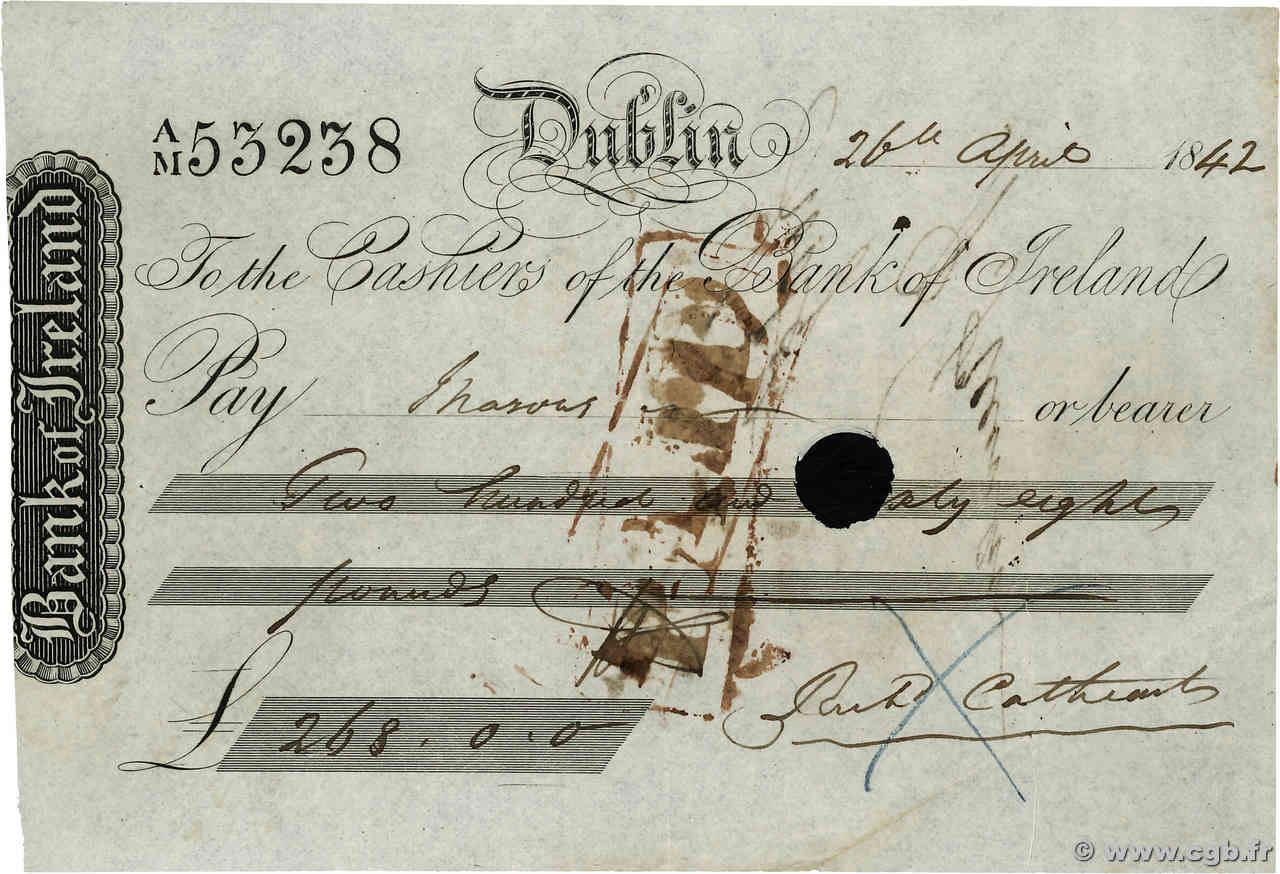 Bank of Ireland
A/M 53238 Dublin 26th April 1842
To the Cashiers of the Bank of Ireland
Pay or bearer
Two hundred and eight
pounds
£ 268.0.0
Cathcart
PAID
© www.cgb.fr